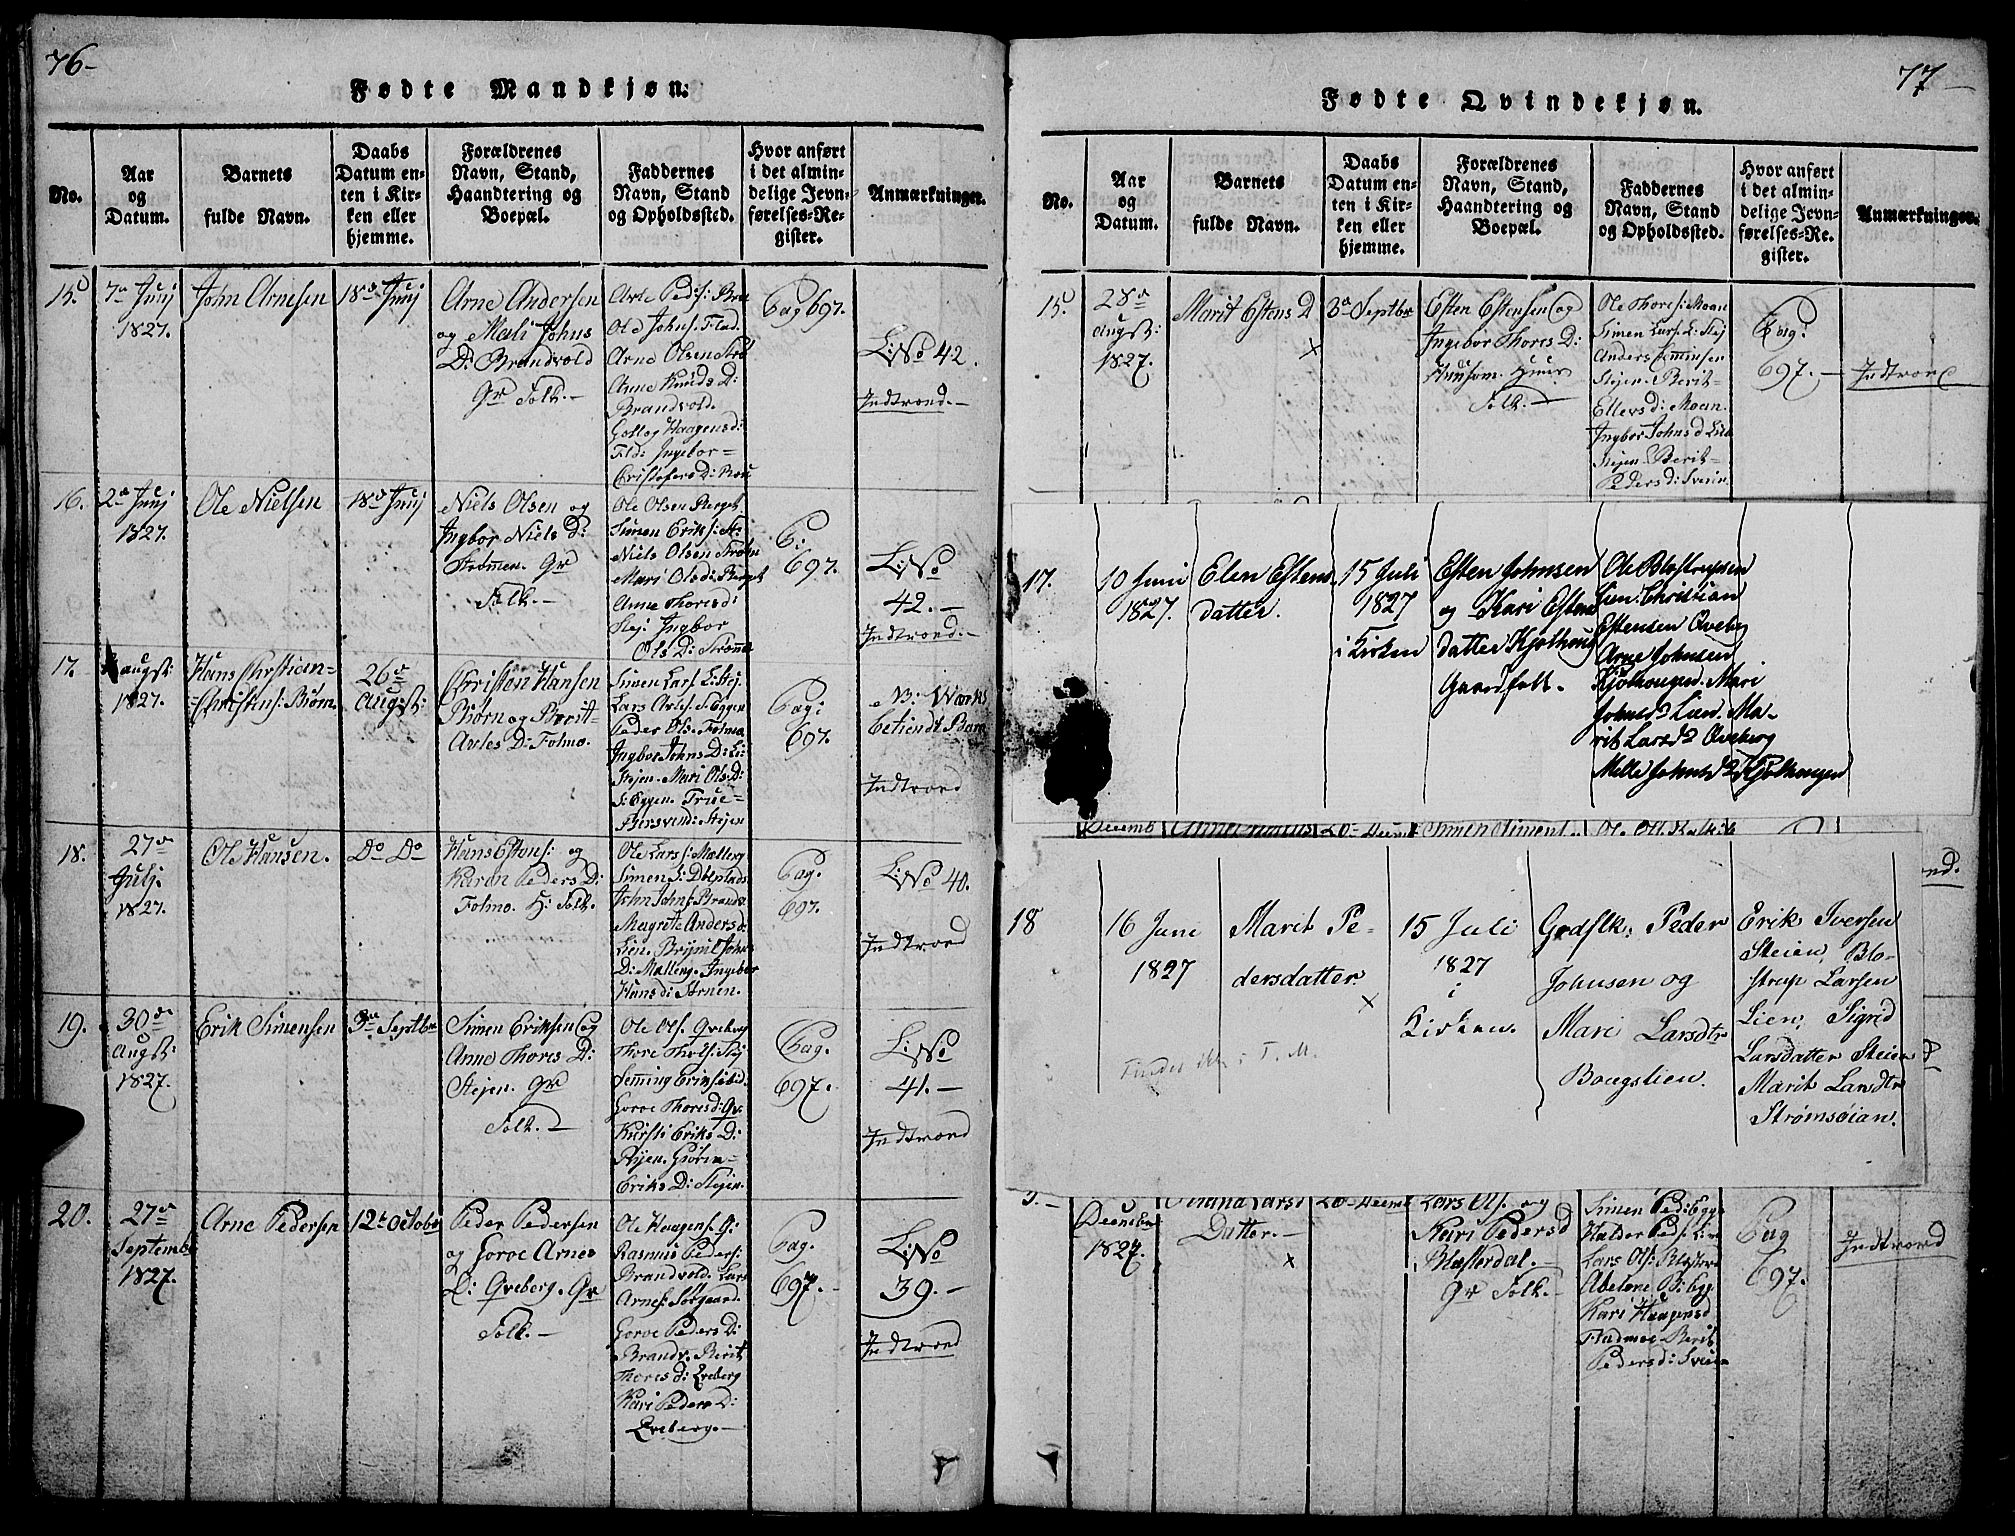 76-
Fødte Mandkjøn.
No.
Aar
og
Datum.
Barnets
fulde Navn.
Daabs
Datum en-
ten i Kir-
ken eller
hjemme.
Forældrenes
Navn, Stand,
Haandtering og
Boepæl.
Faddernes
Navn, Stand
og Opholdssted.
Hvor anført
i det almin-
delige Jevn-
førelses-Re-
gister.
Anmærkninger.
15
7de Junj
1827.
John Arnesen
18de Junj
Arne Andersen
og Mali Johns
D: Brandvold
Gr Folk.-
Ole Johns. Flad.
Arne Olsen
Anne Knuds D:
Brandvold.
Haagensd:
Ingebor=
Christofers D:
Pag 697.
L: No 42.
Indtroed.-
16.
2de Junj
1827.
Ole Nielsen
18de Junj
Niels Olsen og
Ingbor Niels D:
Strømen. Gr
Folk.-
Ole Olsen Berget
Simen Eriks:
Niels Olsen Strømn
Mari Olsd: Berget
Anne Thoresd:
Stej: Ingbor
Ols D: Strømn
P:
697.
L: No
42.-
Indtroed.-
17.
augst:
1827.
Hans Christian=
Christens: Biørn
26de
Augst:
Christen Hansen
Biørn og Berit
Arles D: Folmo.
Simen Lars. L: Stej.
Lars Arles. S: Eggen
Peder Ols. Folmo
Ingbor Johns D: L:
Stejen. Mari Ols. D:
S: Eggen. True=
Bersvend: Stejen
Pag:
697.
B: Wærks
betiendt Barn
Indtroed
18.
27de
Julj.
1827.
Ole Hansen.
Do Do
Hans Estens: og
Karen Peders D:
Folmo. H: Folk.
Ole Lars: Malleng
Simen S:
John Johns: Brandv.
Magrete Andersd.
Lien. Brynil Johns
D: Malleng. Ingebor
Hansd: Stenen.
Pag.
697.
L: No 40.
Indtroed
19.
30de
Augst:
1827.
Erik Simensen
3de Septbr
Simen Eriksen og
Anne Thores D:
Stejen. Gr
Folk.-
Ole Ols: Qveberg
Thore Thors: Stej
Semming Eriks:
Goroe Thoresd: Qv:
Kirsti Eriks D:
Eriks D: Stejen.
Pag.
697.
L: No
41.-
Indtroed
20.
27de
Septemb
1827.
Arne Pedersen
12te Octobr
Peder Pedersen
og Goroe Arnes
D: Qveberg. Gr
Folk.-
Ole Haagens. Q:
Rasmus Peders:
Brandvold. Lars
Arnes: Sørgaard.
Goroe Peders D:
Brandv. Berit
Thores d: Qveberg
Kari Peders D:
Qveberg.-
Pag.
697.-
L: No
39.-
Indtroed
77-
Fødte Qvindekjøn.
No.
Aar
og
Datum.
Barnets
fulde Navn.
Daabs
Datum en-
ten i Kir-
ken eller
hjemme.
Forældrenes
Navn, Stand,
Haandtering og
Boepæl.
Faddernes
Navn, Stand
og Opholdssted.
Hvor anført
i det almin-
delige Jevn-
førelses-Re-
gister.
Anmærkninger.
15.
28de
augst:
1827.
Marit Estens D
x
3de Septbr
Esten Estensen og
Ingebor Thores D:
Huus
Folk.-
Ole Thores: Moan
Simen Lars. L: Stej
Anders Simensen
Stejen. Berit=
Ellevs d: Moan.
Ingbor Johns d Lille
Stejen. Berit=
Peders d: Sveien
Pag:
697.-
Indtroed
17.
10 Juni
1827.
Elen Estens
datter.
15 Juli
1827
i Kirken
Esten Johnsen
og Kari Estens
datter Kjølhoug
Gaardfolk.
Ole Blostrupsen
Lien: Christian
Estensen Qveberg
Arne Johnsen
Kjølhougen. Mari
Johnsd Lien. Ma-
rit Larsd Qveberg
Melle Johnsd Kjølhougen
Decemb
18
16 Juni
1827
Marit Pe-
dersdatter
x
15 Juli
1827
i
Kirken.
Grdflk: Peder
Johnsen og
Mari Larsdtr
Bougslien.
Erik Iversen
Steien, Blo-
strup Larsen
Lien, Sigrid
Larsdatter Steien
Marit Larsdtr
Strømsøian.
Decembr
1827.
Larsd
Datter.-
x
20 Decemb
Lars Ols. og
Kari Pedersd
Blæsterdal.-
Gr Folk.-
Simen Ped: Egge
Halder Peds.
Lars Ols: Blæster
Abelone P: Egg.
Kari Haagensd
Fladmoe Berit
Peders d: Sveien
Pag
697.
Indtroed